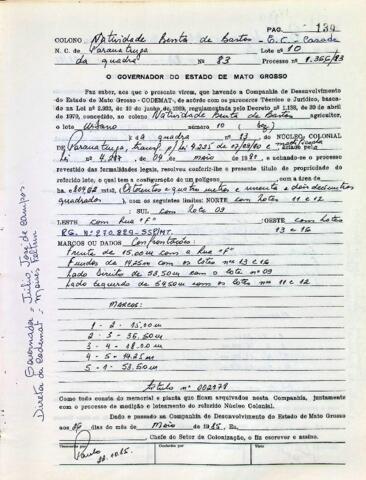 PAG. 139
COLONO Natividade Benta de Bastos - E.C. - Casada
N. C. de Paranatinga Lote nº 10
da quadra Nº 83 Processo nº 1.366/83
O GOVERNADOR DO ESTADO DE MATO GROSSO
Faz saber, aos que o presente virem, que havendo a Companhia de Desenvolvimento
do Estado de Mato Grosso - CODEMAT, de acordo com os pareceres Técnico e Jurídico, basea-
do na Lei nº de junho de regulamentada pelo Decreto nº 1.138, de 29 de abril
de 1970, concedido ao colono Natividade Benta de Bastos agricultor,
o lote Urbano número 10 (dez)
da quadra nº 83 do NÚCLEO COLONIAL
de Paranatinga, transf. p/ Lei 4.235 de e achando-se o processo
Lei nº 4, de 09 de maio de
revestido das formalidades legais, resolveu conferir-lhe o presente título de propriedade do
referido lote, o qual tem a configuração de um polígono com a área de
mts2 (Oitocentos e quatro metros e
quadrados), com os seguintes limites: NORTE com lotes 11 e 12
SUL com lote 09
LESTE com Rua "F" OESTE com lotes
RG. Nº 13 e 16
MARCOS OU DADOS Confrontações:
Frente de 15.00m com a Rua "F"
Fundos de 14.25m com os lotes nºs 13 e 16
Lado direito de 53,50m com o lote nº 09
Lado esquerdo de 54.50m com os lotes nºs 11 e 12
MARCOS:
1 - 2 - 15.00m
2 - 3 - 36,50m
3 - 4 - 18.00m
4 - 5 - 14.25m
5 - 1 - 53.50m
título nº 002978
Como tudo consta do memorial e planta que ficam arquivados nesta Companhia, juntamente
com o processo de medição e loteamento do referido Núcleo Colonial.
Dado e passado na Companhia de Desenvolvimento do Estado de Mato Grosso
aos dias do mês de Maio de 1985. Eu,
, Chefe do Setor de Colonização, o fiz escrever e assino.
Paulo
Governador - Julio José de Campos
Diretor da Codemat - Moisés Feltrin